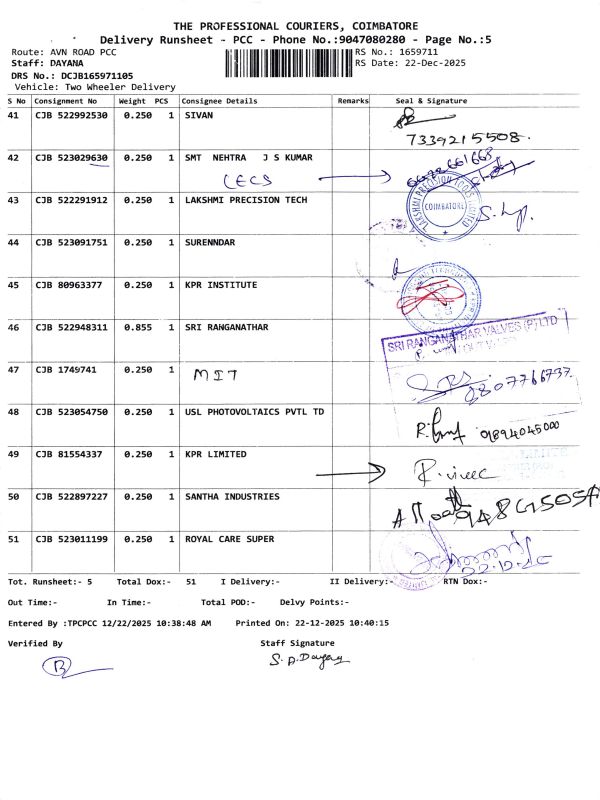 THE PROFESSIONAL COURIERS, COIMBATORE
Delivery Runsheet ~ PCC - Phone No.:9047080280 - Page No.:5
Route: AVN ROAD PCC RS No.: 1659711
Staff: DAYANA RS Date: 22-Dec-2025
DRS No.: DCJB165971105
Vehicle: Two Wheeler Delivery
S No Consignment No Weight PCS Consignee Details Remarks Seal & Signature
41 CJB 522992530 0.250 1 SIVAN
7339215508.
42 CJB 523029630 0.250 1 SMT NEHTRA J S KUMAR
LECS
43 CJB 522291912 0.250 1 LAKSHMI PRECISION TECH
LAKSHMI PRECISION TOOLS LIMITED
COIMBATORE
44 CJB 523091751 0.250 1 SURENNDAR
45 CJB 80963377 0.250 1 KPR INSTITUTE
46 CJB 522948311 0.855 1 SRI RANGANATHAR
SRI RANGANATHAR VALVES (P) LTD
47 CJB 1749741 0.250 1 MIT
9807766737.
48 CJB 523054750 0.250 1 USL PHOTOVOLTAICS PVTL TD
01894045000
49 CJB 81554337 0.250 1 KPR LIMITED
R. vivec
50 CJB 522897227 0.250 1 SANTHA INDUSTRIES
51 CJB 523011199 0.250 1 ROYAL CARE SUPER
Tot. Runsheet:- 5 Total Dox:- 51 I Delivery:- II Delivery:- RTN Dox:-
Out Time:- In Time:- Total POD:- Delvy Points:-
Entered By :TPCPCC 12/22/2025 10:38:48 AM Printed On: 22-12-2025 10:40:15
Verified By Staff Signature
S. A. Dayana